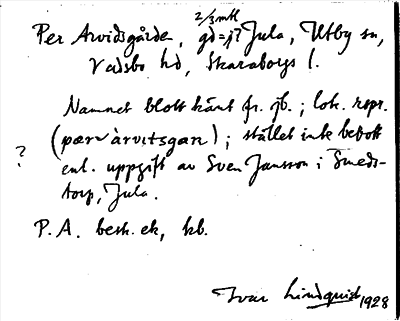 2/3 mtl
Per Arvidsgårde, gd = j? Jula, Utby sn,
Vadsbo hd, Skaraborgs l.
Namnet blott känt fr. jb.; lok. repr.
? (pærv àrvitsgan); stället inte bebott
enl. uppgift av Sven Jansson i Smeds-
torp, Jula.
P. A. besk. ek, kb.
Ivar Lindquist 1928